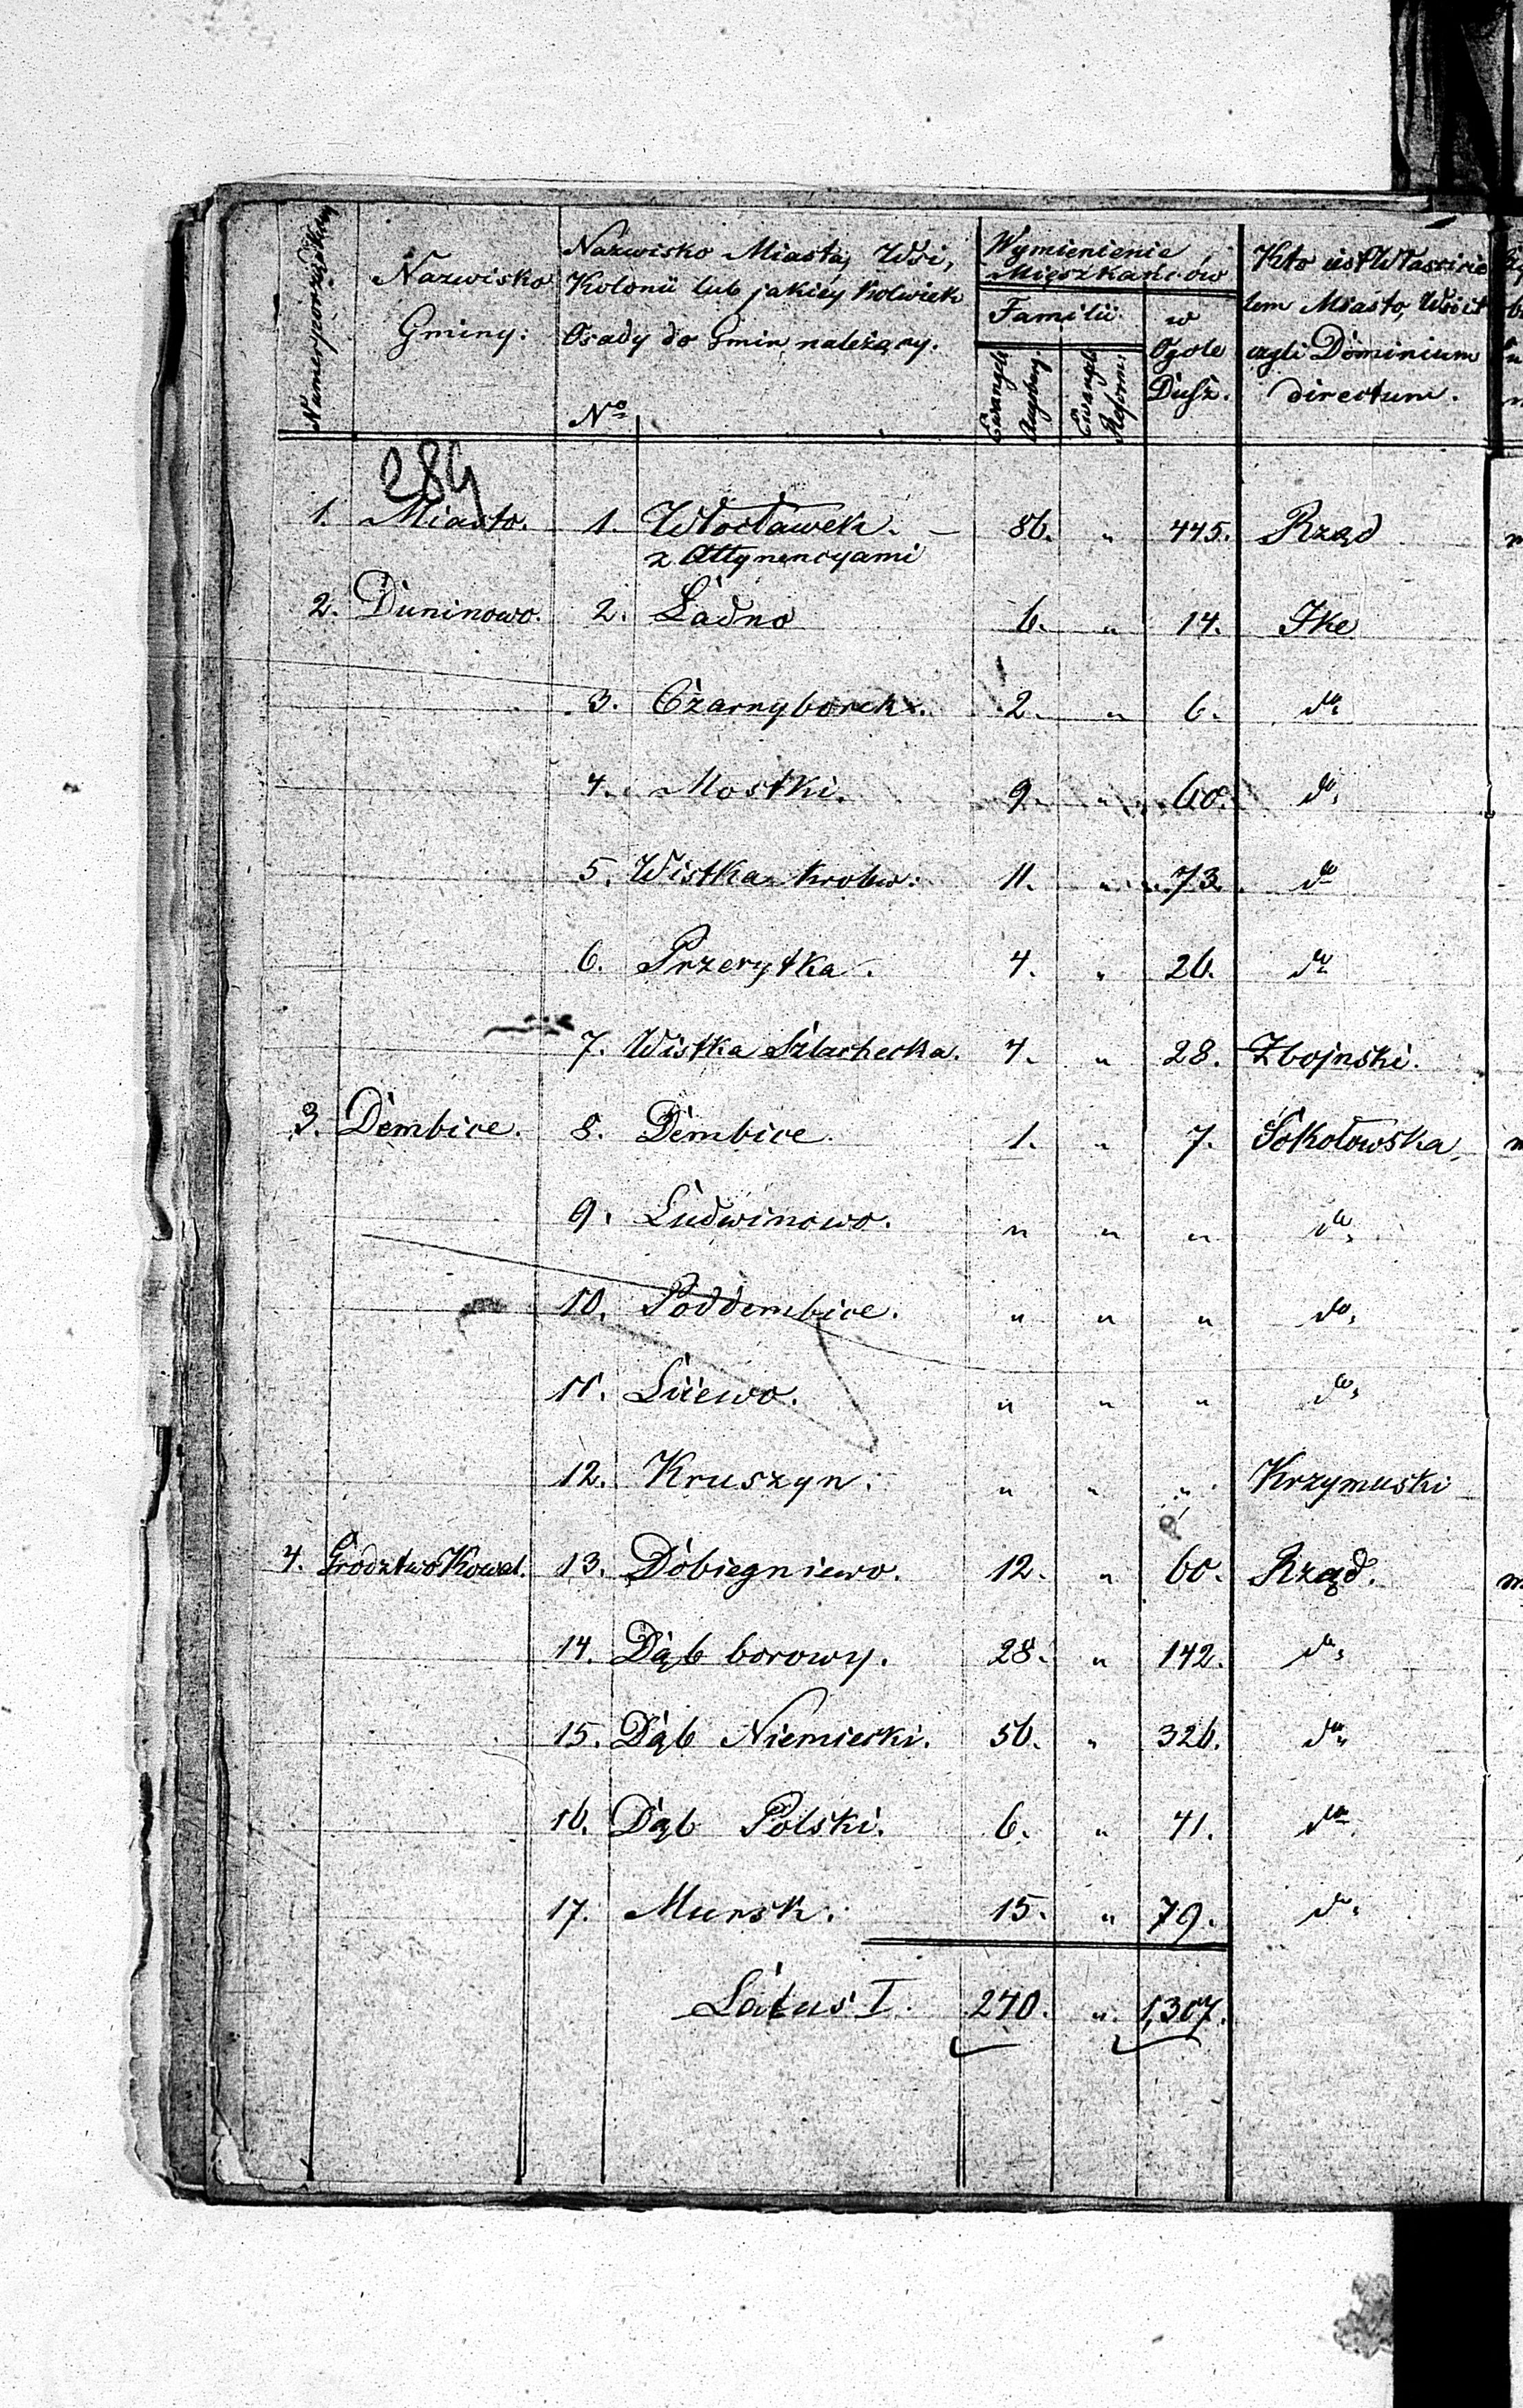 Numer porządkowy
Nazwisko Gminy:
Nazwisko Miasta, Wsi,
Kolonii lub jakiey kolwiek
Osady do Gmin należący.
No
Wymienienie
Mięszkańców
Familii
Ewangel: Augsburg.
Ewangel: Reform:
w Ogole Dusz.
Kto iest Właścicie
lem Miasto, Wsi it
czyli Dominium
directum.
284
1. Miasto. 1. Włocławek. — 86. " 445. Rząd
z Attynencyami
2. Duninowo. 2. Ładno 6. " 14.
3. Czarny borek. 2. " 6. do
4. Mostki. 9. " 60. do
5. Wistka Krolew: 11. " 73. do
6. Przerytka. 4. " 26. do
7. Wistka Szlachecka. 4. " 28. Zbojnski.
3. Dembice. 8. Dembice. 1. " 7. Sokołowska,
9. Ludwinowo. " " " do
10. Poddembice. " " " do
11. " " " do
12. Kruszyn. " " " Krzymuski
4. Grodztwo Kowal. 13. Dobiegniewo. 12. " 60. Rząd.
14. Dąb borowy. 28. " 142. do
15. Dąb Niemiecki. 56. " 326. do
16. Dąb Polski. 6. " 41. do
17. Mursk. 15. " 79. do
Latus I. 240. " 1,307.